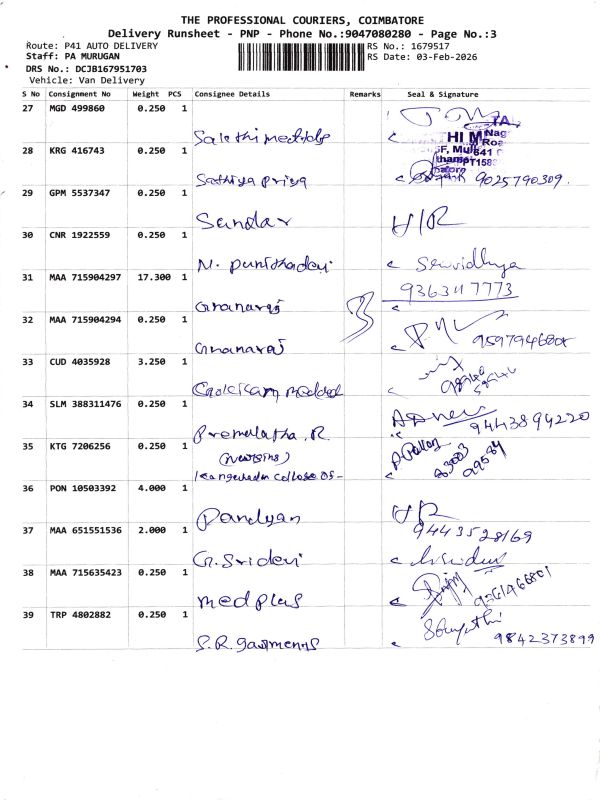 THE PROFESSIONAL COURIERS, COIMBATORE
Delivery Runsheet - PNP - Phone No.:9047080280 - Page No.:3
Route: P41 AUTO DELIVERY RS No.: 1679517
Staff: PA MURUGAN RS Date: 03-Feb-2026
DRS No.: DCJB167951703
Vehicle: Van Delivery
S No Consignment No Weight PCS Consignee Details Remarks Seal & Signature
27 MGD 499860 0.250 1
28 KRG 416743 0.250 1
Sathiya priya 9025790309.
29 GPM 5537347 0.250 1
Sundar H/R
30 CNR 1922559 0.250 1
N. punithadevi Srividhya
31 MAA 715904297 17.300 1 9363117773
Gnanaraj
32 MAA 715904294 0.250 1
Gnanaraj 9597946808
33 CUD 4035928 3.250 1
34 SLM 388311476 0.250 1
Premalatha. R 9443894220
35 KTG 7206256 0.250 1
(nursing)
36 PON 10503392 4.000 1
Pandyan H/R
37 MAA 651551536 2.000 1 9443528169
G. Sridevi
38 MAA 715635423 0.250 1
medplus
39 TRP 4802882 0.250 1
S.R. garments 9842373899